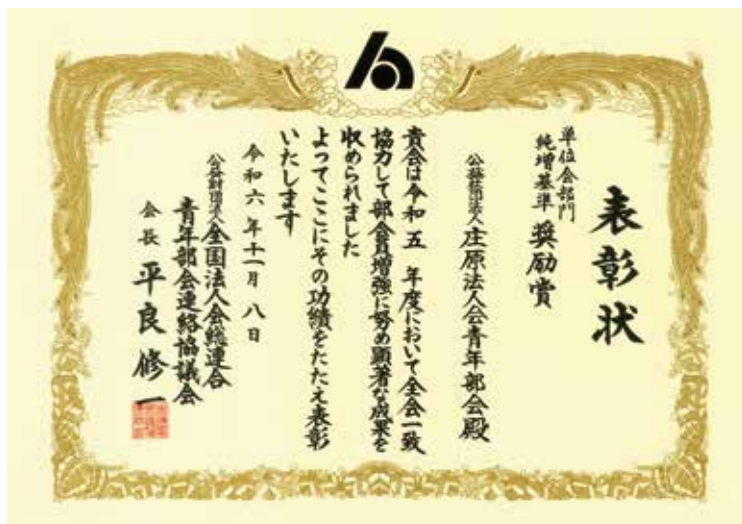 表彰状
単位会部門
純増基準 奨励賞
公益社団法人 庄原法人会青年部会殿
貴会は令和五年度において全会一致
協力して部会員増強に努め顕著な成果を
収められました
よってここにその功績をたたえ表彰
いたします
令和六年十一月八日
公益財団法人 全国法人会総連合
青年部会連絡協議会
会長 平良修一